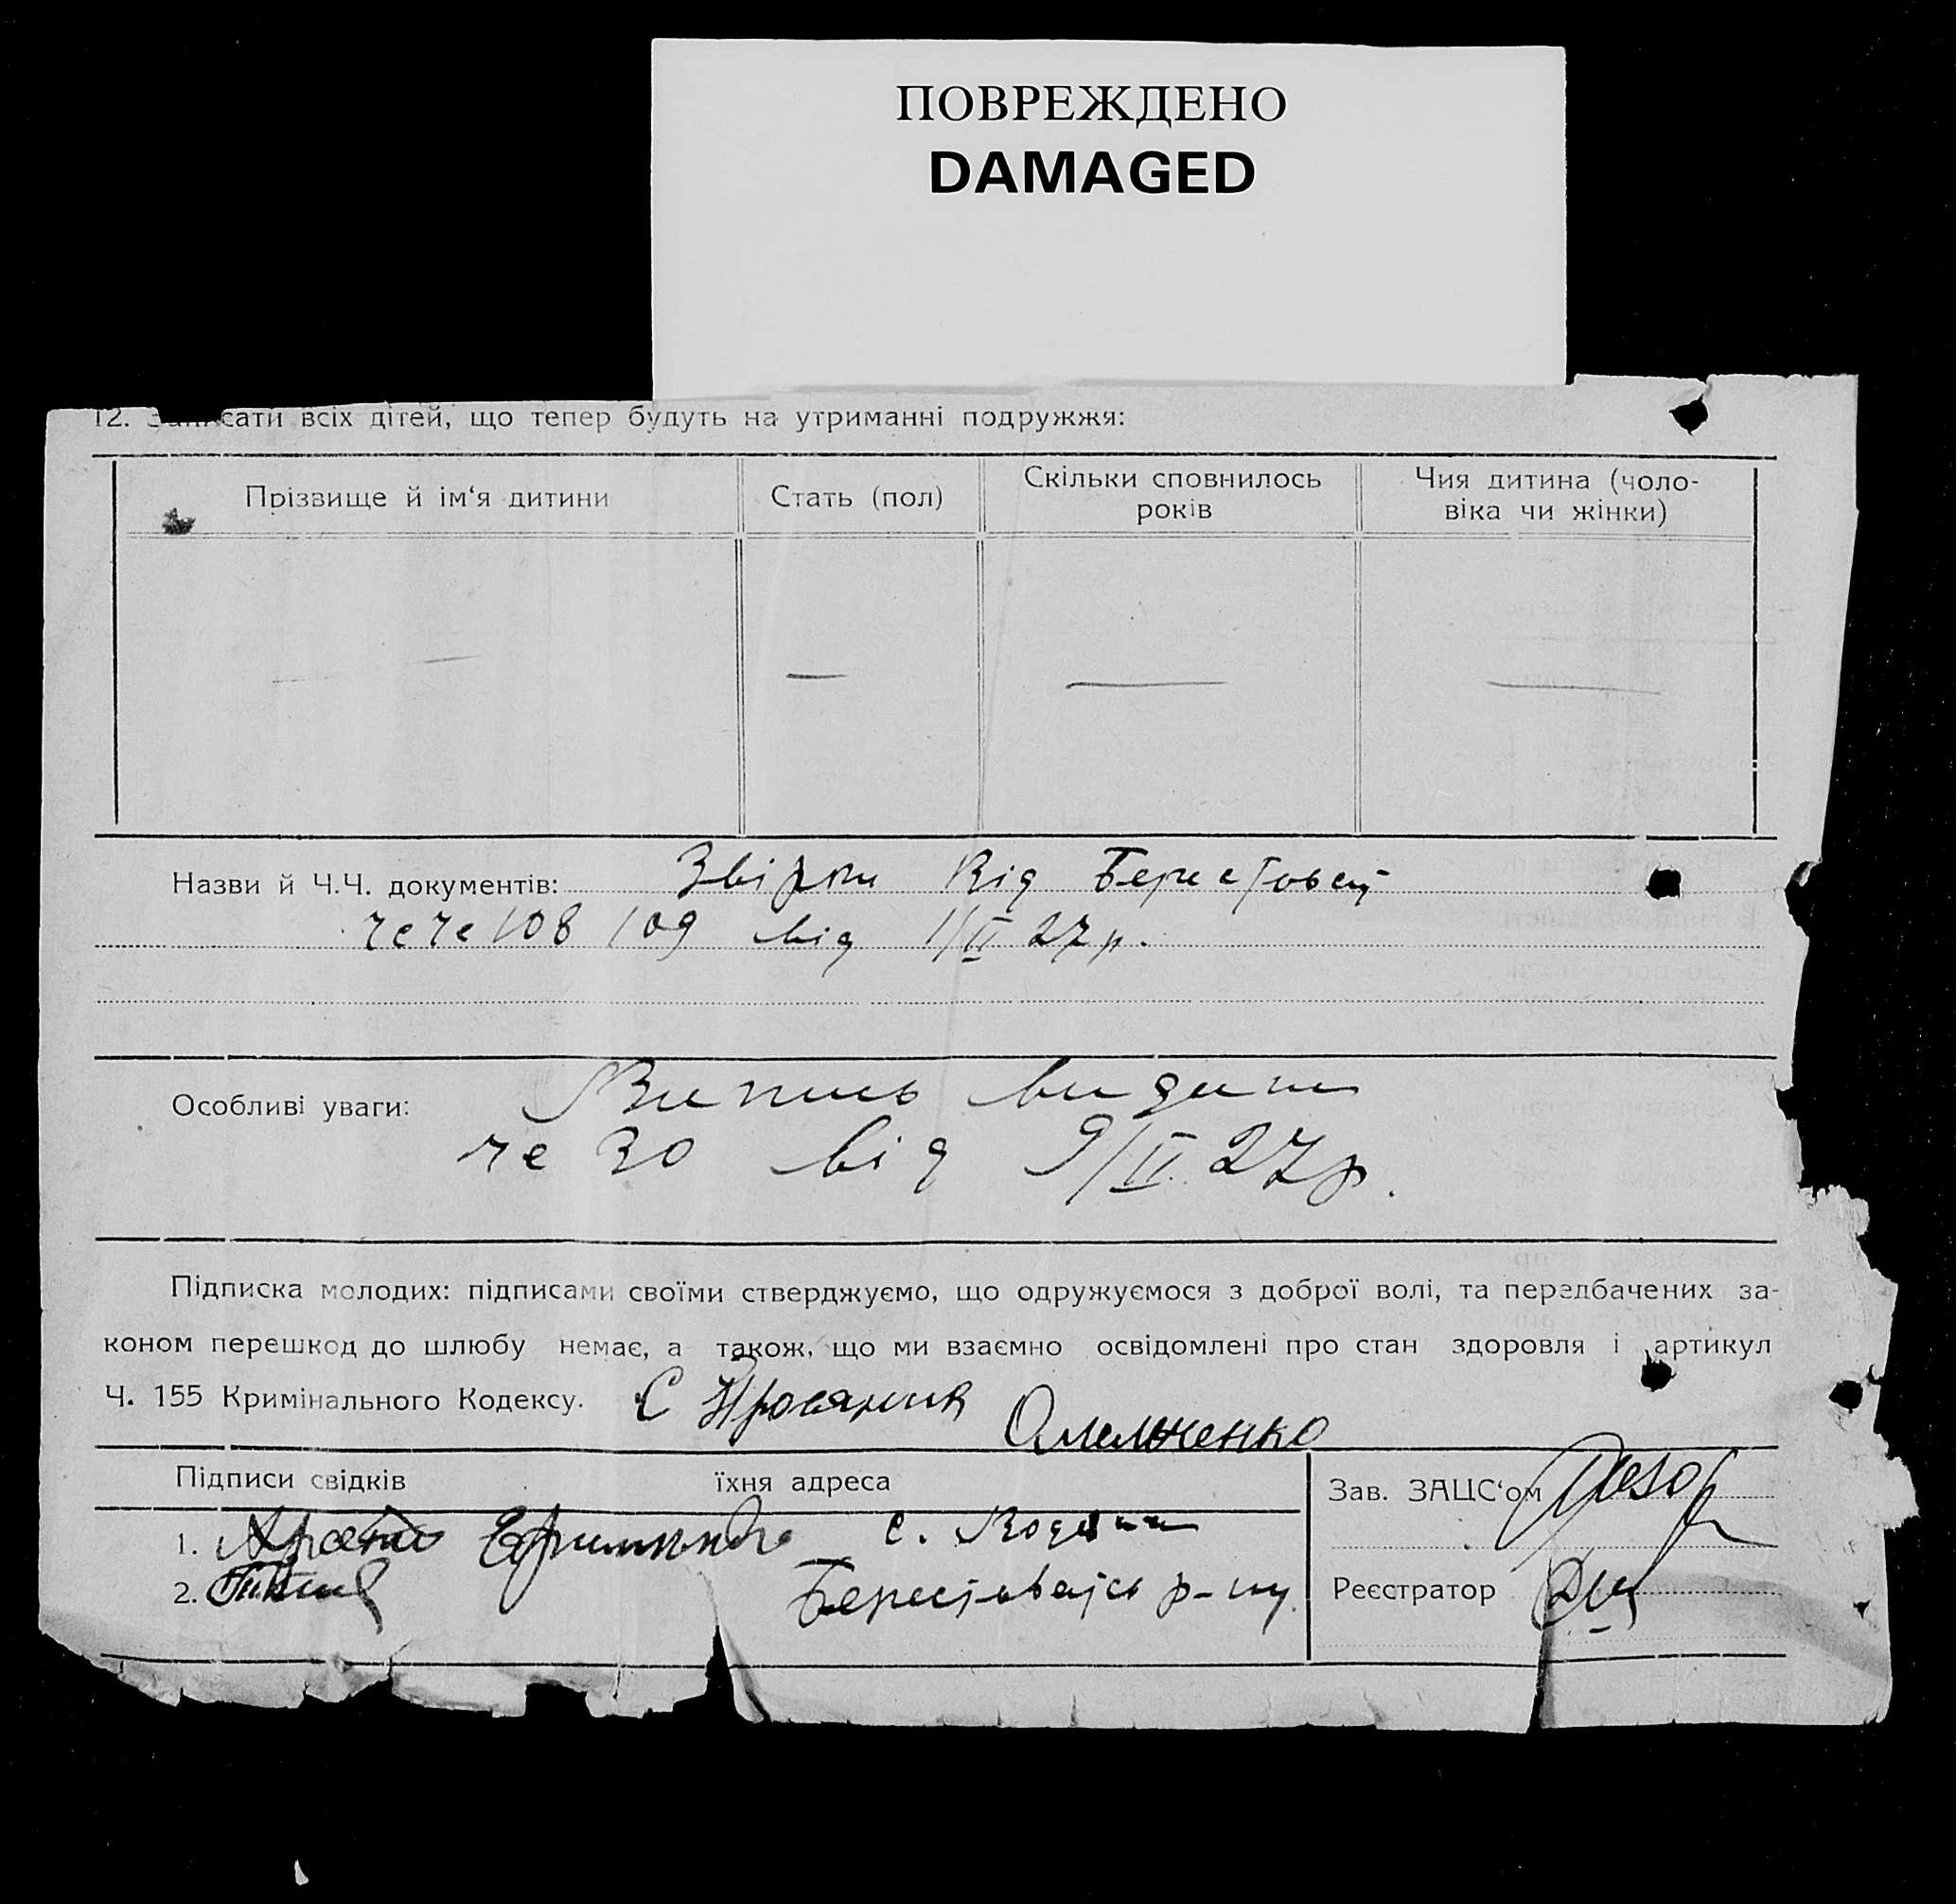 ПОВРЕЖДЕНО
DAMAGED
12. Записати всіх дітей, що тепер будуть на утриманні подружжя:
Прізвище й ім‘я дитини
Стать (пол)
Скільки сповнилось
років
Чия дитина (чоло-
віка чи жінки)
— — — —
Назви й Ч.Ч. документів: Від
108 109 від 1/II 27 р.
Особливі уваги: Випись видати
че 30 від 9/II 27 р.
Підписка молодих: підписами своїми стверджуємо, що одружуємося з доброї волі, та передбачених за-
коном перешкод до шлюбу немає, а також, що ми взаємно освідомлені про стан здоровля і артикул
Ч. 155 Кримінального Кодексу. С
Омельченко
Підписи свідків їхня адреса
Зав. ЗАЦС‘ом
1. с.
2. р-ну
Реєстратор